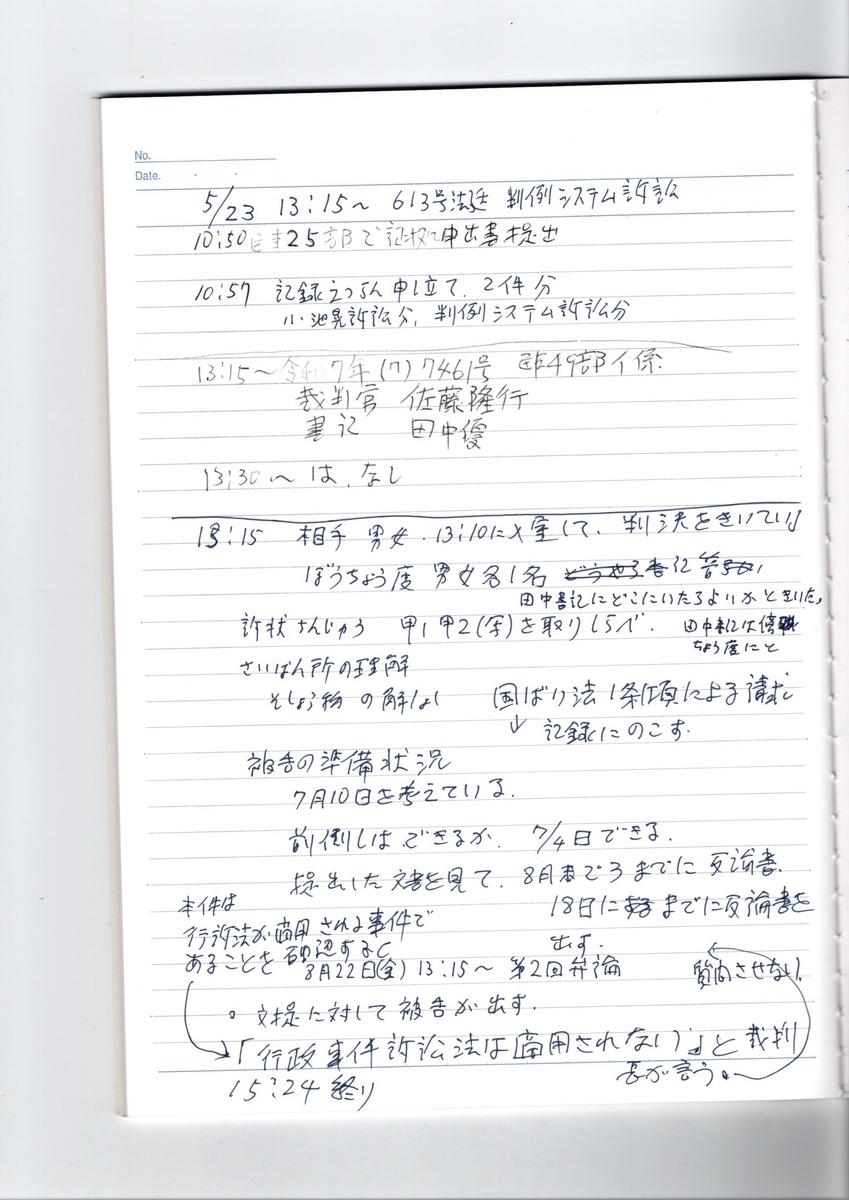 No.
Date.
5/23 13:15〜 613号法廷 判例システム訴訟
10:50 25部で証拠申出書提出
10:57 記録えつらん申し立て、2件分
小池晃訴訟分、判例システム訴訟分
13:15〜令和7年(ワ)7461号 民事49部イ係
裁判官 佐藤隆行
書記 田中優
13:30〜は、なし
13:15 相手 男女、13:10に入室して、判決をきいている
ぼうちょう席 男女各1名
田中書記にどこにいたらよいかときいた。
訴状ちんじゅつ 甲1甲2(写)を取りしらべ。
さいばん所の理解
そしょう物の解しゃく 国ばい法1条1項による請求
↓ 記録にのこす。
被告の準備状況
7月10日を考えている。
前倒しはできるか、 7/4日できる。
提出した文書を見て、8月までに反論書。
18日までに反論書を
出す。
本件は
行訴法が適用される事件で
あることを確認すると
8月22日(金) 13:15〜 第2回弁論
質問させない。
○文提に対して被告が出す。
「行政事件訴訟法は適用されない」と裁判
長が言う。
15:24 終り